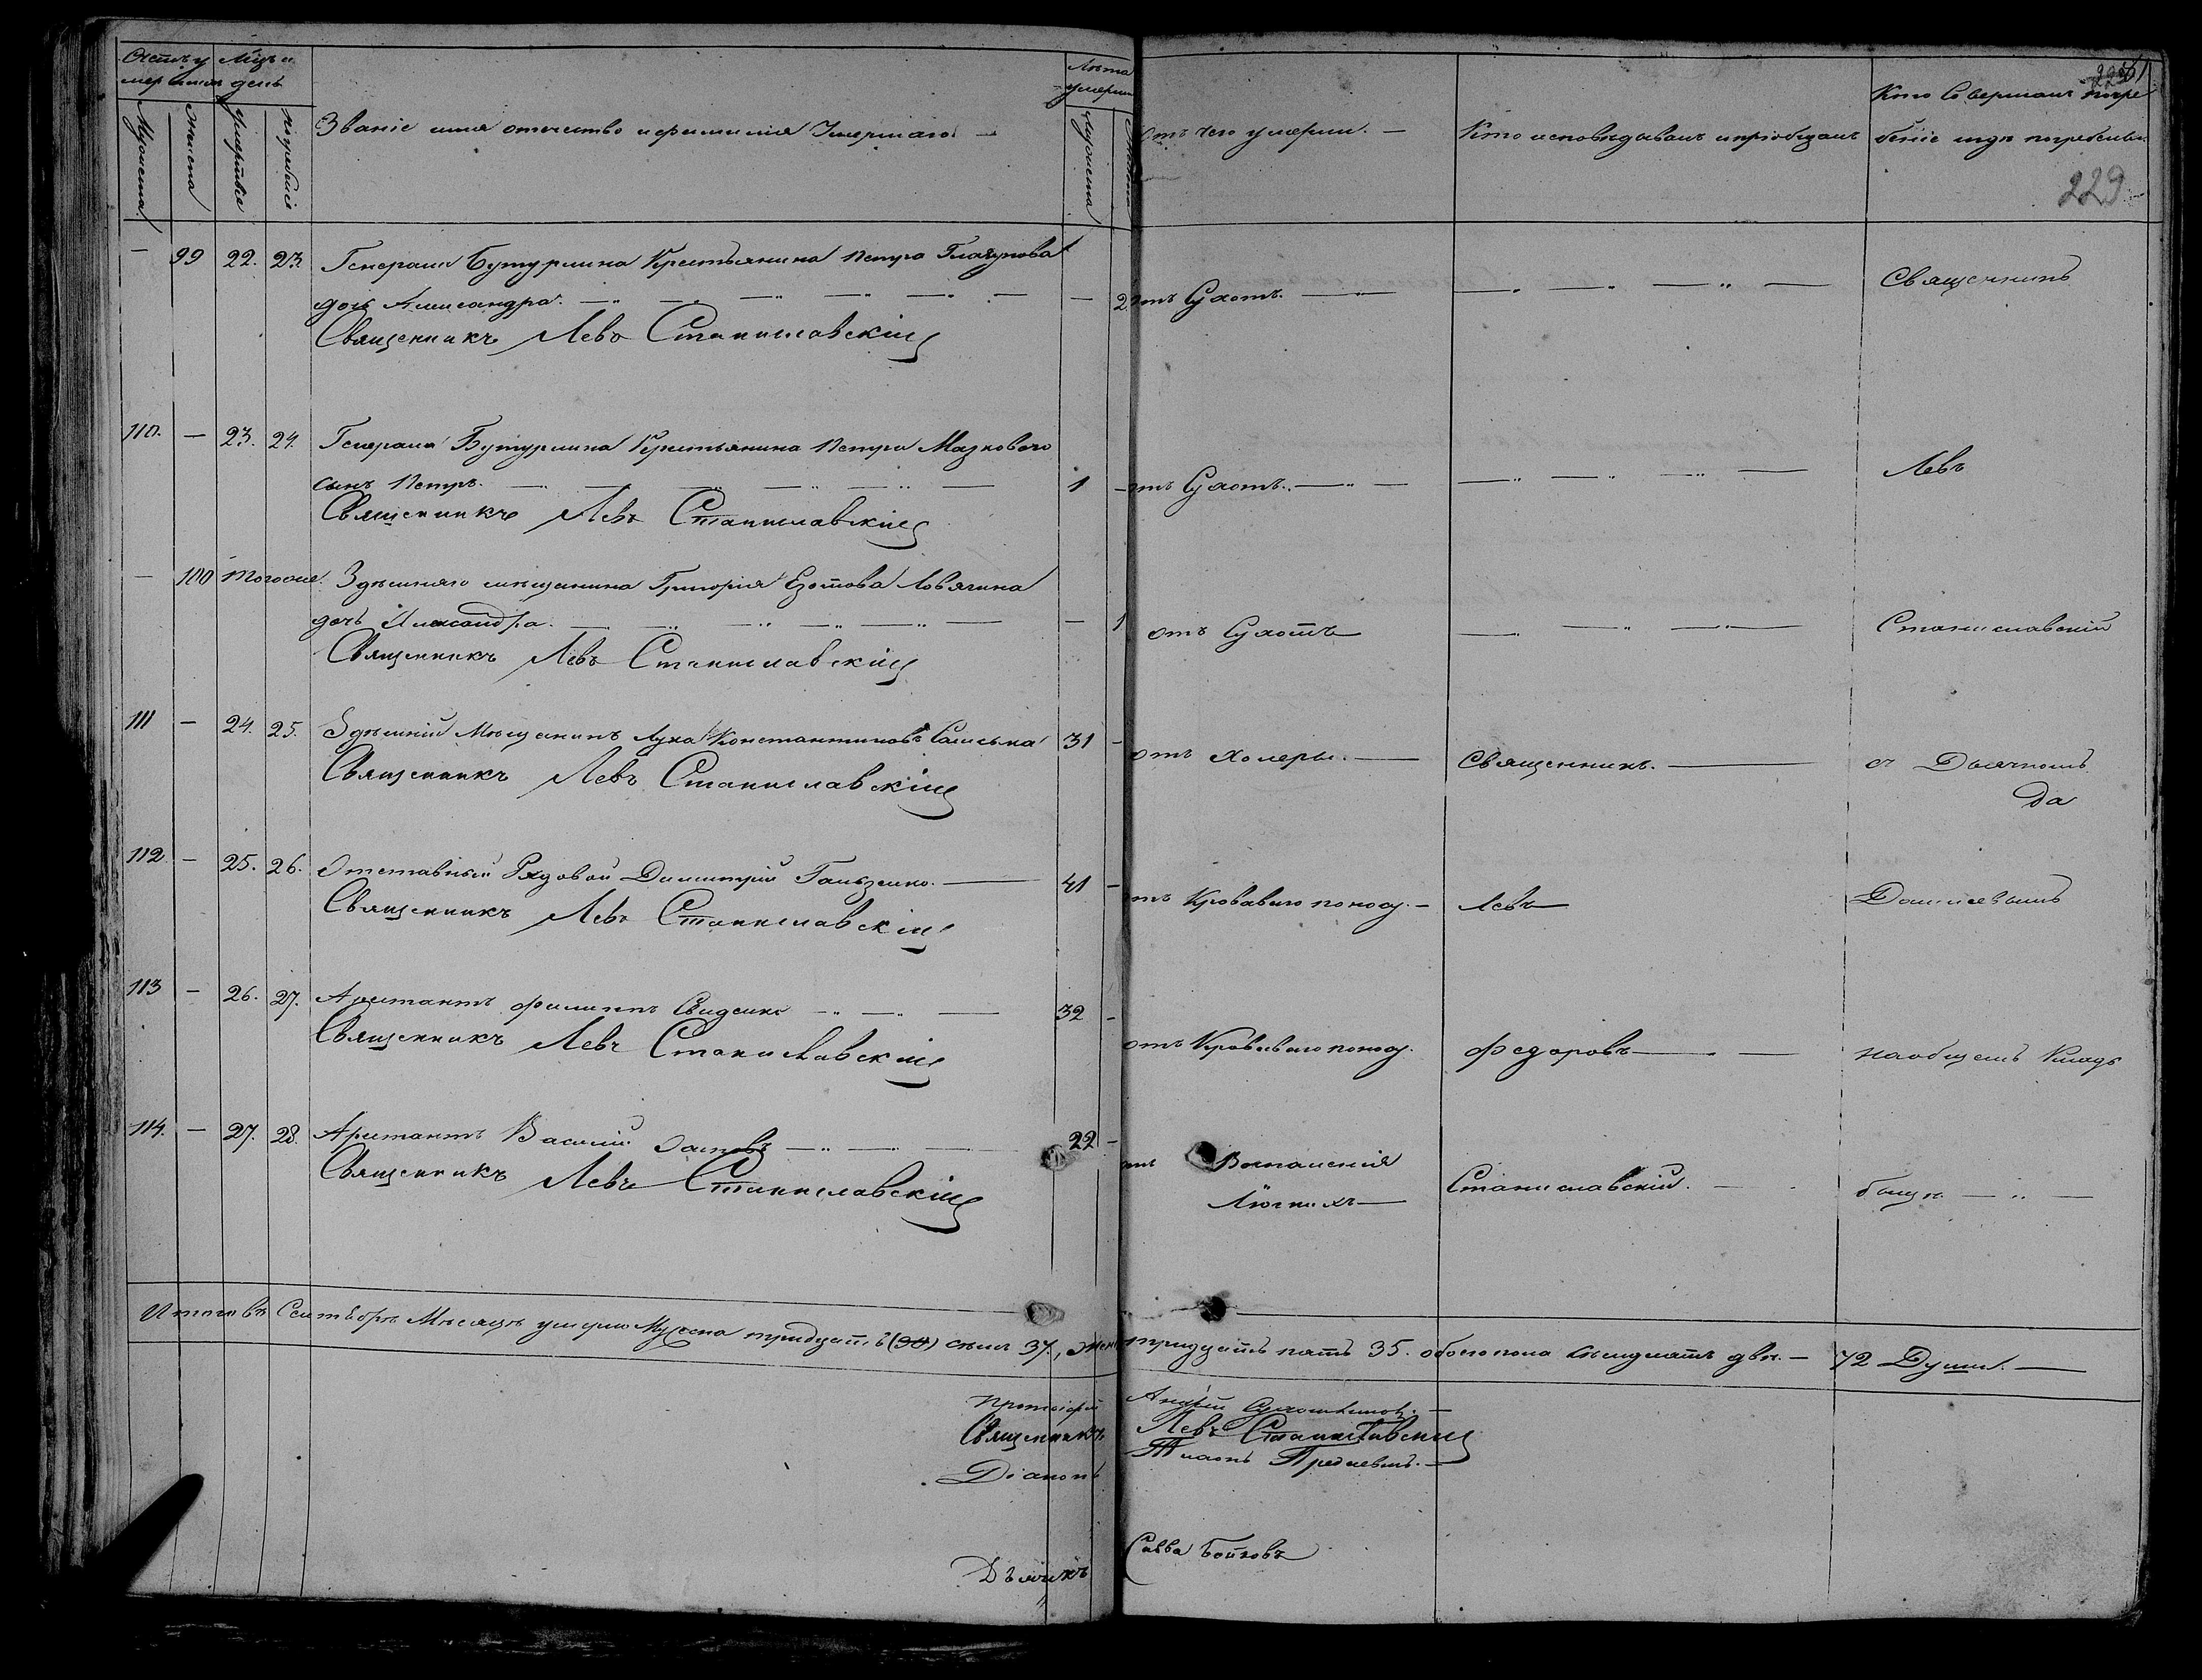 Счетъ умершихъ
Мѣц. и день
Званіе имя отечество и фамилія Умершаго. —
Лѣта умерш
Отъ чего умерли. —
Кто исповѣдывалъ и пріобщалъ
Кто Совершалъ погре
беніе и гдѣ погребены.
Мужеска
Женска
Умертвіе
погребеніе
Мужеска
229
— 99 22. 23. Генерала Бутурлина Крестьянина Петра
дочь Александра. — — 2 отъ Сухотъ. — Священникъ
Священникъ Левъ Станиславскій
110. — 23. 24. Генерала Бутурлина Крестьянина Петра Мазкового
сынъ Петръ. — 1 — отъ Сухотъ. — Левъ
Священникъ Левъ Станиславскій
— 100 Того же. Здѣшняго мѣщанина Григорія Ловягина
дочь Александра. — — 1 отъ Сухотъ — Станиславскій
Священникъ Левъ Станиславскій
111 — 24. 25. Здѣшній Мѣщанинъ Лука Константиновъ 31 — отъ Холеры. — Священникъ. — съ Дьячкомъ
Священникъ Левъ Станиславскій
да
112 — 25. 26. Отставный Рядовой Димитрій 41 — отъ Кроваваго поносу. — Левъ —
Священникъ Левъ Станиславскій
113 — 26. 27. Арестантъ Филиппъ 32 — отъ Кроваваго поносу. Федоровъ — на общемъ Кладъ
Священникъ Левъ Станиславскій
114. — 27. 28. Арестантъ Василій 22 — отъ Воспаленія
Лёгкихъ — Станиславскій. бищѣ. —
Священникъ Левъ Станиславскій
Итого въ Сентябрѣ Мѣсяцѣ умерло Мужеска тридцать (30) семь 37., жен тридцать пять 35. обоего пола семдесятъ двѣ. — 72 Души. —
Протоіерей Андрей
Священникъ Левъ Станиславскій
Діаконъ
Дьячикъ Савва Бойковъ